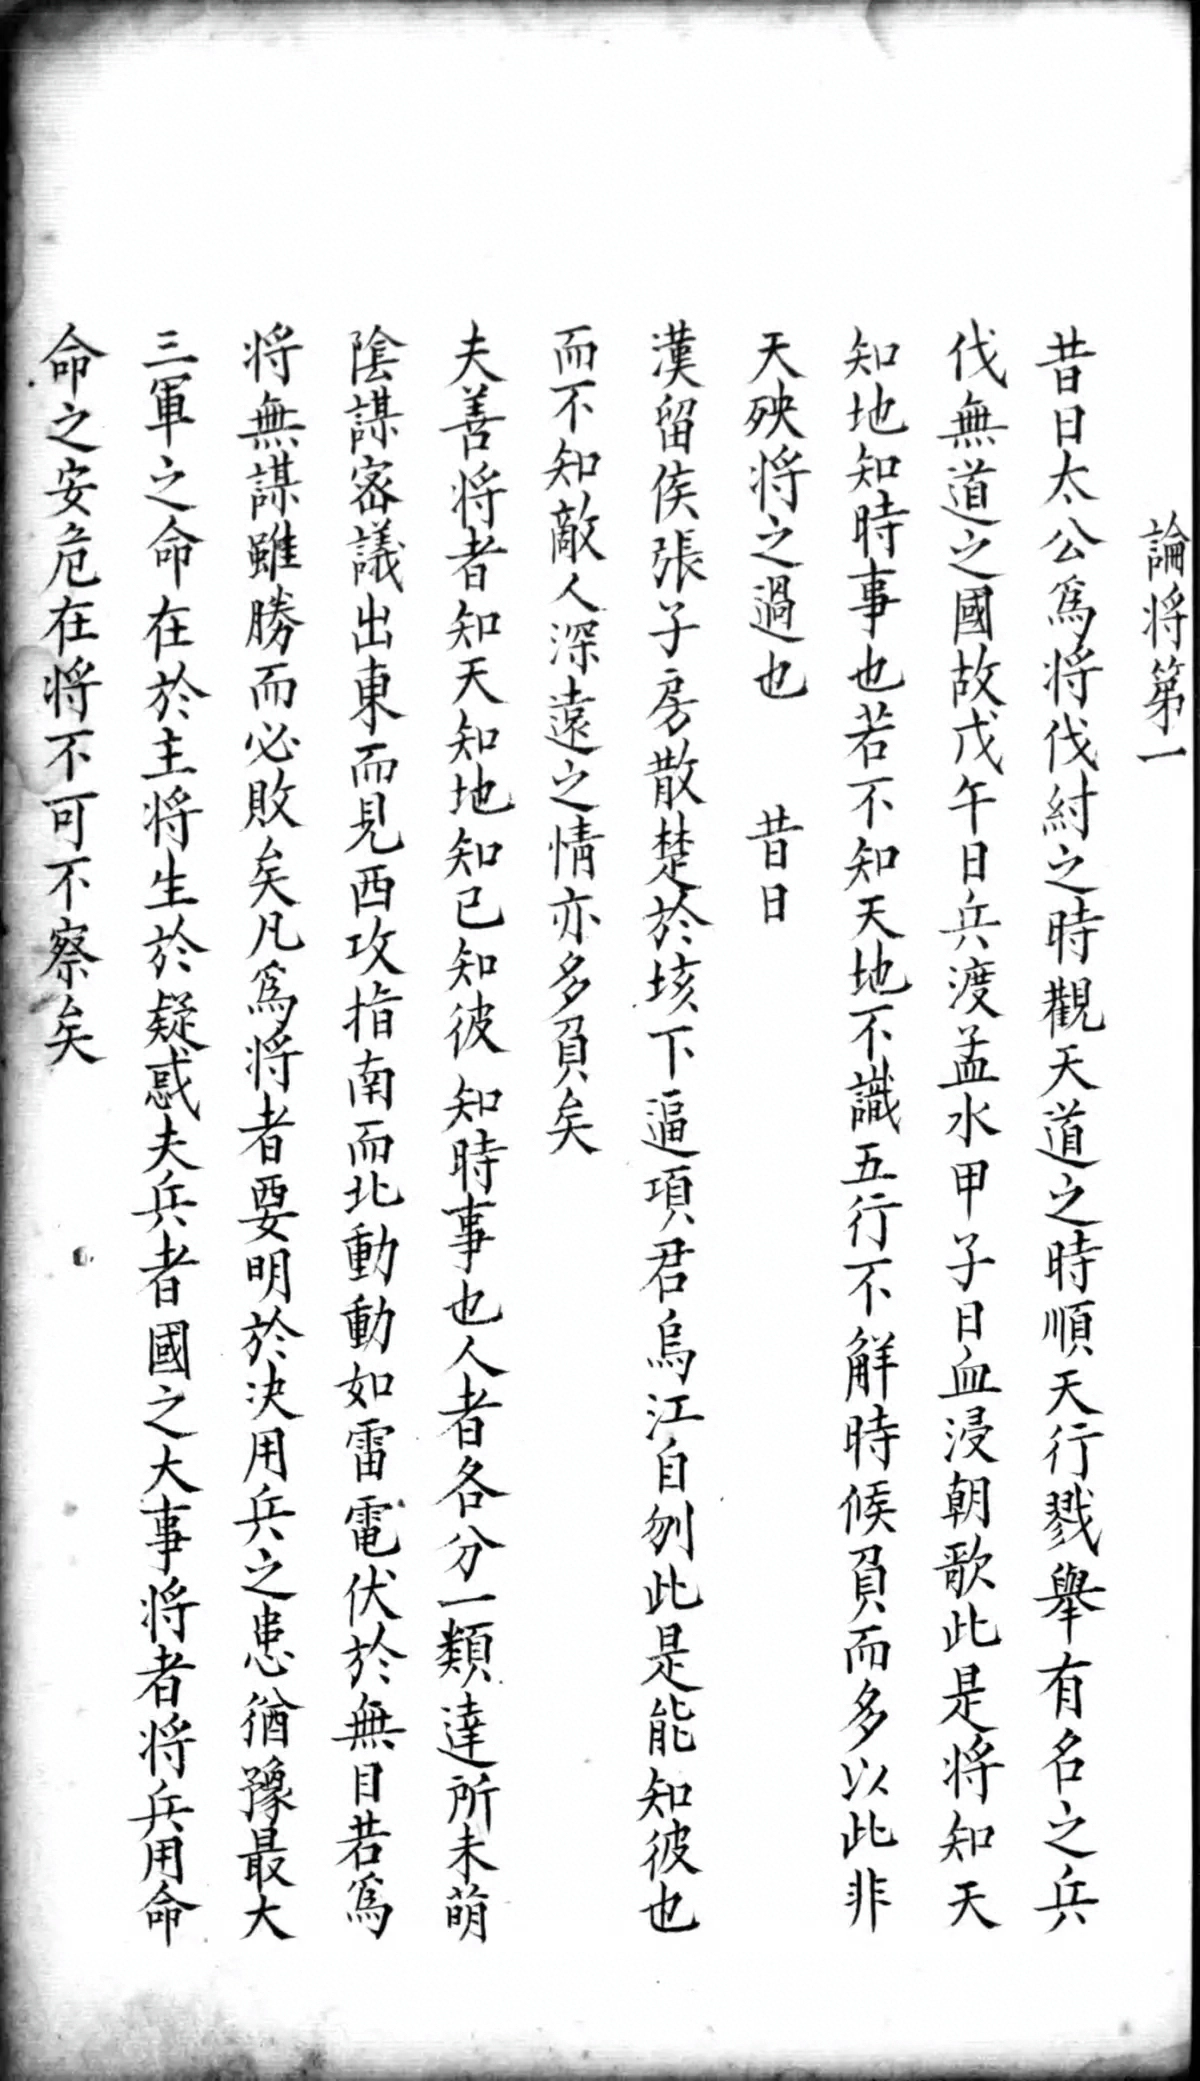 論将第一
昔日太公爲将伐紂之時觀天道之時順天行戮舉有名之兵
伐無道之國故戊午日兵渡孟水甲子日血浸朝歌此是将知天
知地知時事也若不知天地不識五行不觧時候負而多以此非
天殃将之過也　昔日
漢留侯張子房散楚於垓下逼項君烏江自刎此是能知彼也
而不知敵人深遠之情亦多負矣
夫善将者知天知地知已知彼知時事也人者各分一類達所未萌
陰謀密議出東而見西攻指南而北動動如雷電伏於無目若爲
将無謀雖勝而必敗矣凡爲将者要明於决用兵之患猶豫最大
三軍之命在於主将生於疑惑夫兵者國之大事将者将兵用命
命之安危在将不可不察矣